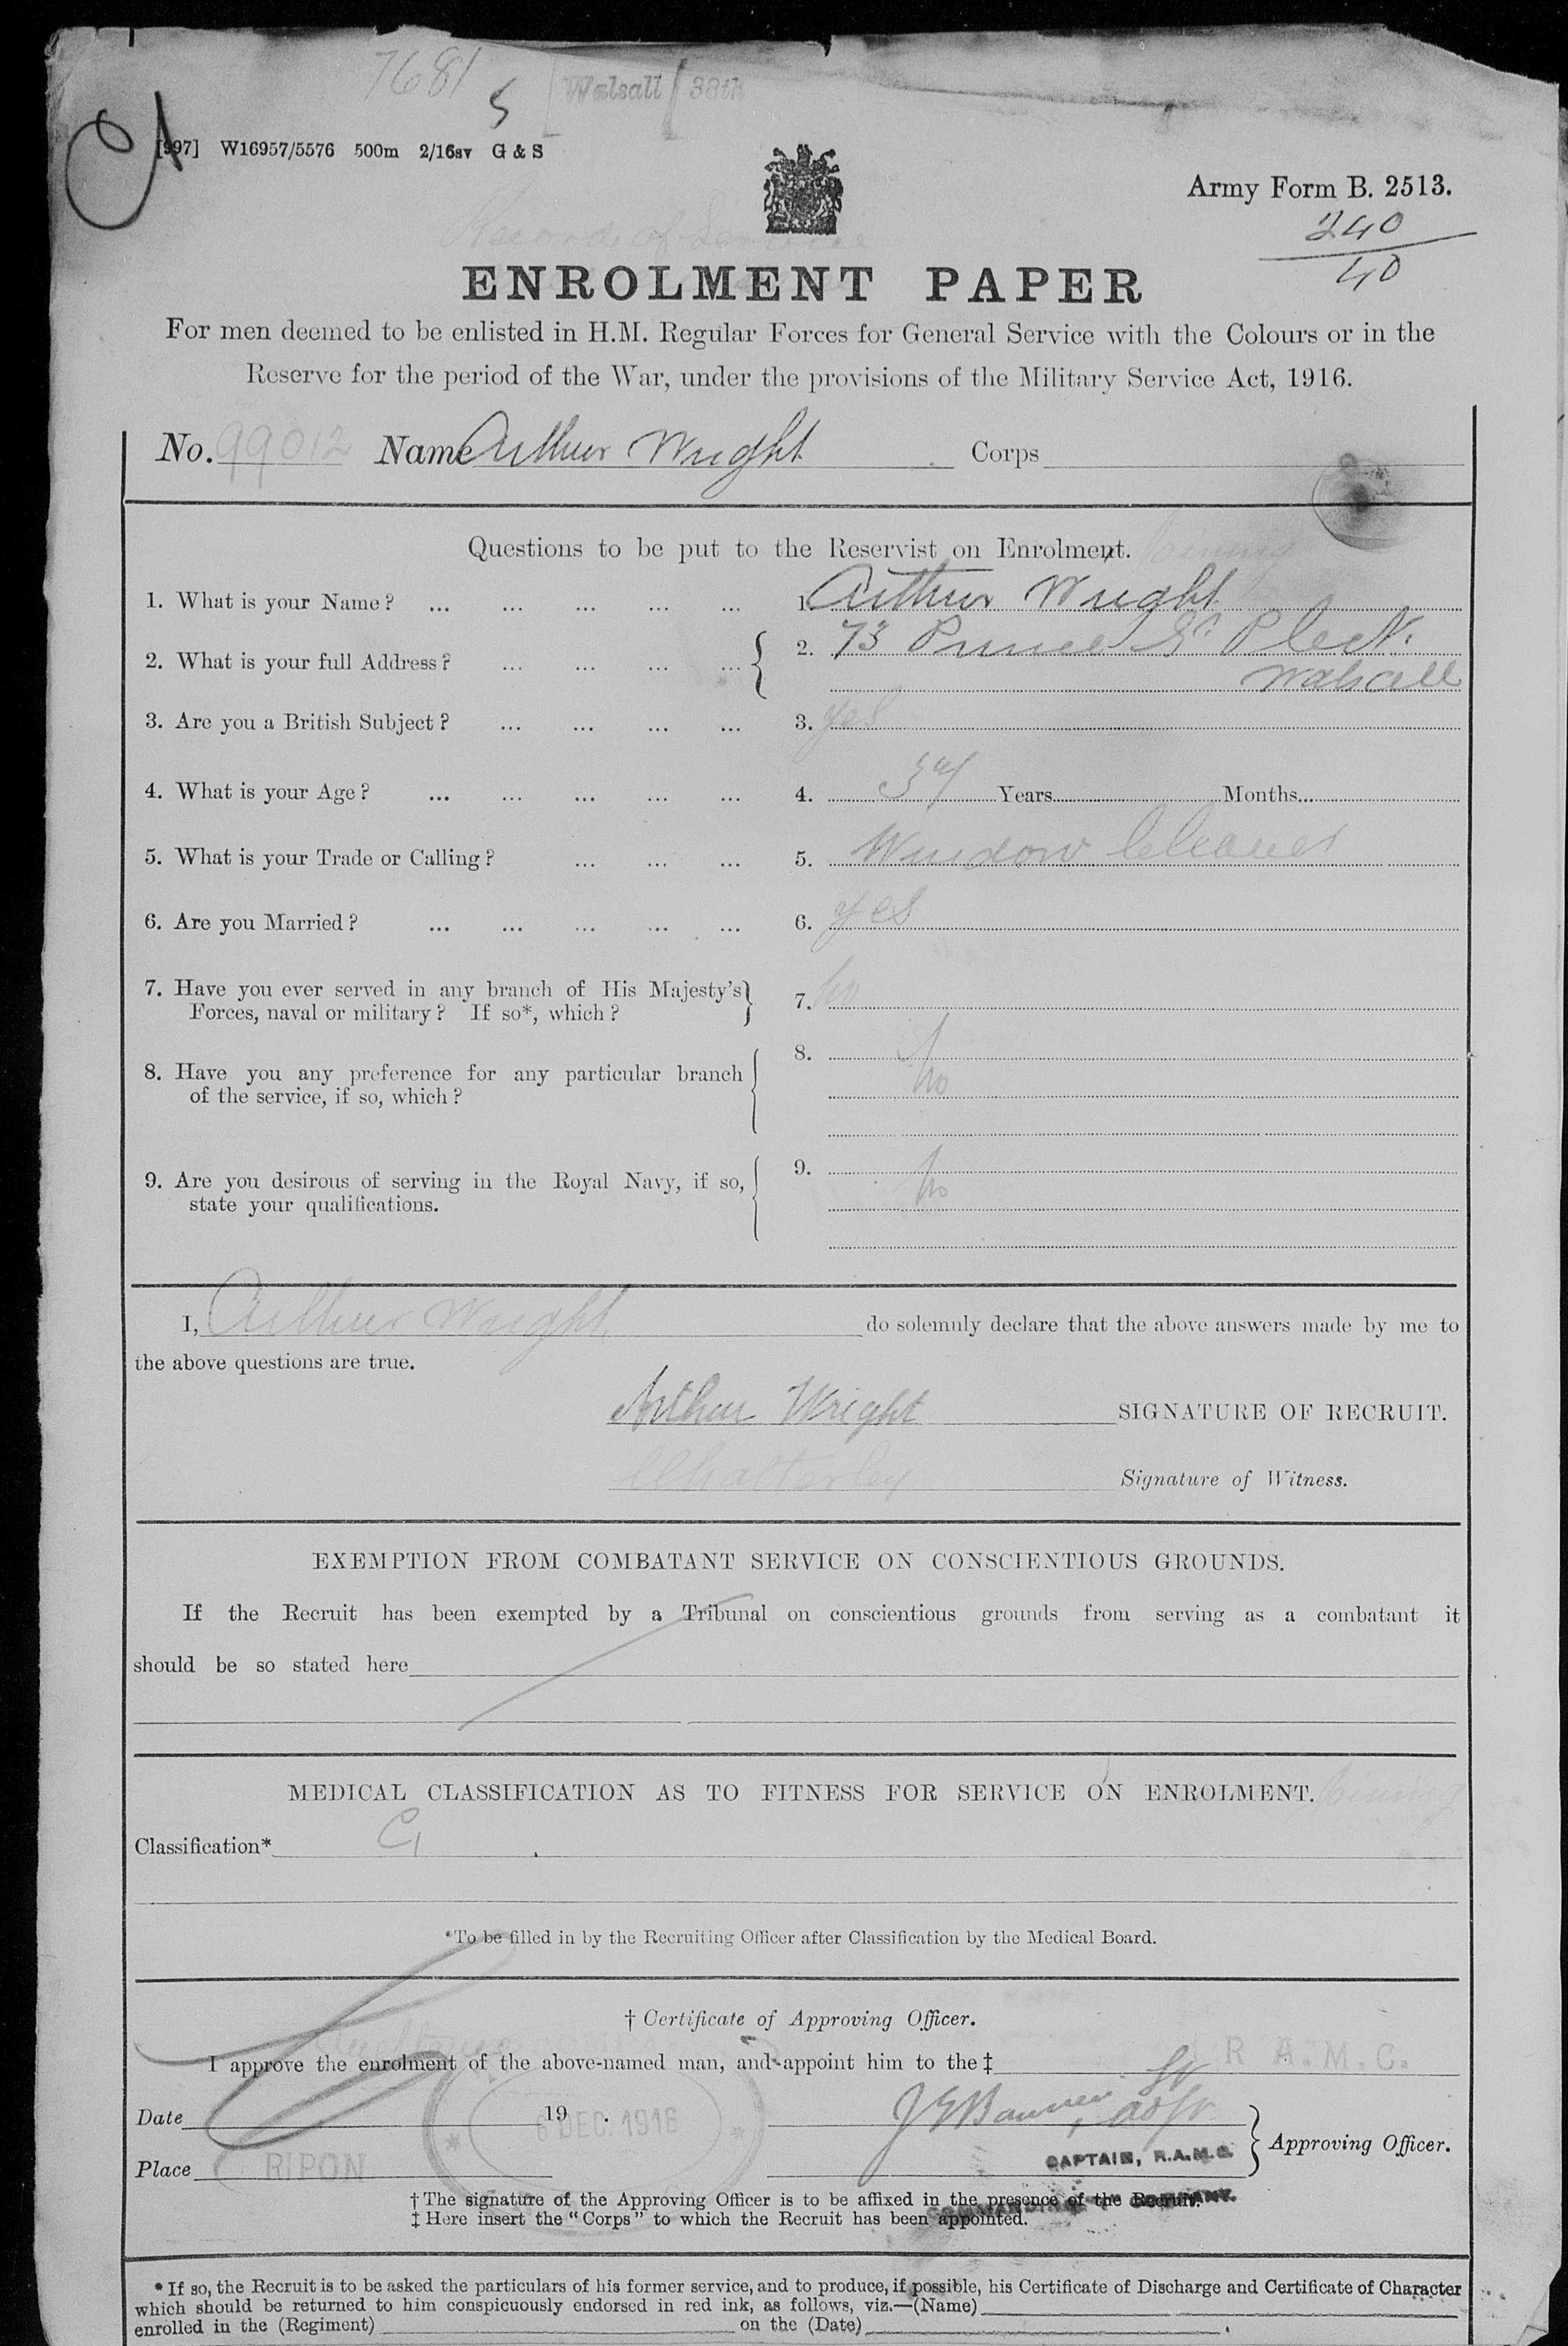 7681 S Walsall 38th
[997] W16957/5576 500m 2/16sv G & S
Army Form B. 2513.
240
40
ENROLMENT PAPER
For men deemed to be enlisted in H.M. Regular Forces for General Service with the Colours or in the
Reserve for the period of the War, under the provisions of the Military Service Act, 1916.
No. 99012 Name Arthur Wright Corps
Questions to be put to the Reservist on Enrolment.
1. What is your Name? ... ... ... ... ... 1. Arthur Wright
2. What is your full Address? ... ... ... ... 2. 73 Prince St. Pleck.
Walsall
3. Are you a British Subject? ... ... ... ... 3. yes
4. What is your Age? ... ... ... ... ... 4. 34 Years Months
5. What is your Trade or Calling? ... ... ... 5. Window Cleaner
6. Are you Married? ... ... ... ... ... 6. yes
7. Have you ever served in any branch of His Majesty's 7. no
Forces, naval or military? If so*, which?
8.
8. Have you any preference for any particular branch no
of the service, if so, which?
9.
9. Are you desirous of serving in the Royal Navy, if so, no
state your qualifications.
I, Arthur Wright do solemnly declare that the above answers made by me to
the above questions are true.
Arthur Wright SIGNATURE OF RECRUIT.
Chatterley Signature of Witness.
EXEMPTION FROM COMBATANT SERVICE ON CONSCIENTIOUS GROUNDS.
If the Recruit has been exempted by a Tribunal on conscientious grounds from serving as a combatant it
should be so stated here
MEDICAL CLASSIFICATION AS TO FITNESS FOR SERVICE ON ENROLMENT. Joining
Classification* C1
*To be filled in by the Recruiting Officer after Classification by the Medical Board.
† Certificate of Approving Officer.
I approve the enrolment of the above-named man, and appoint him to the ‡ R.A.M.C.
Date 19 .
6 DEC. 1916
Approving Officer.
CAPTAIN, R.A.M.C.
Place RIPON
† The signature of the Approving Officer is to be affixed in the presence of the Recruit.
COMMANDING COMPANY.
‡ Here insert the "Corps" to which the Recruit has been appointed.
* If so, the Recruit is to be asked the particulars of his former service, and to produce, if possible, his Certificate of Discharge and Certificate of Character
which should be returned to him conspicuously endorsed in red ink, as follows, viz.—(Name)
enrolled in the (Regiment) on the (Date) .